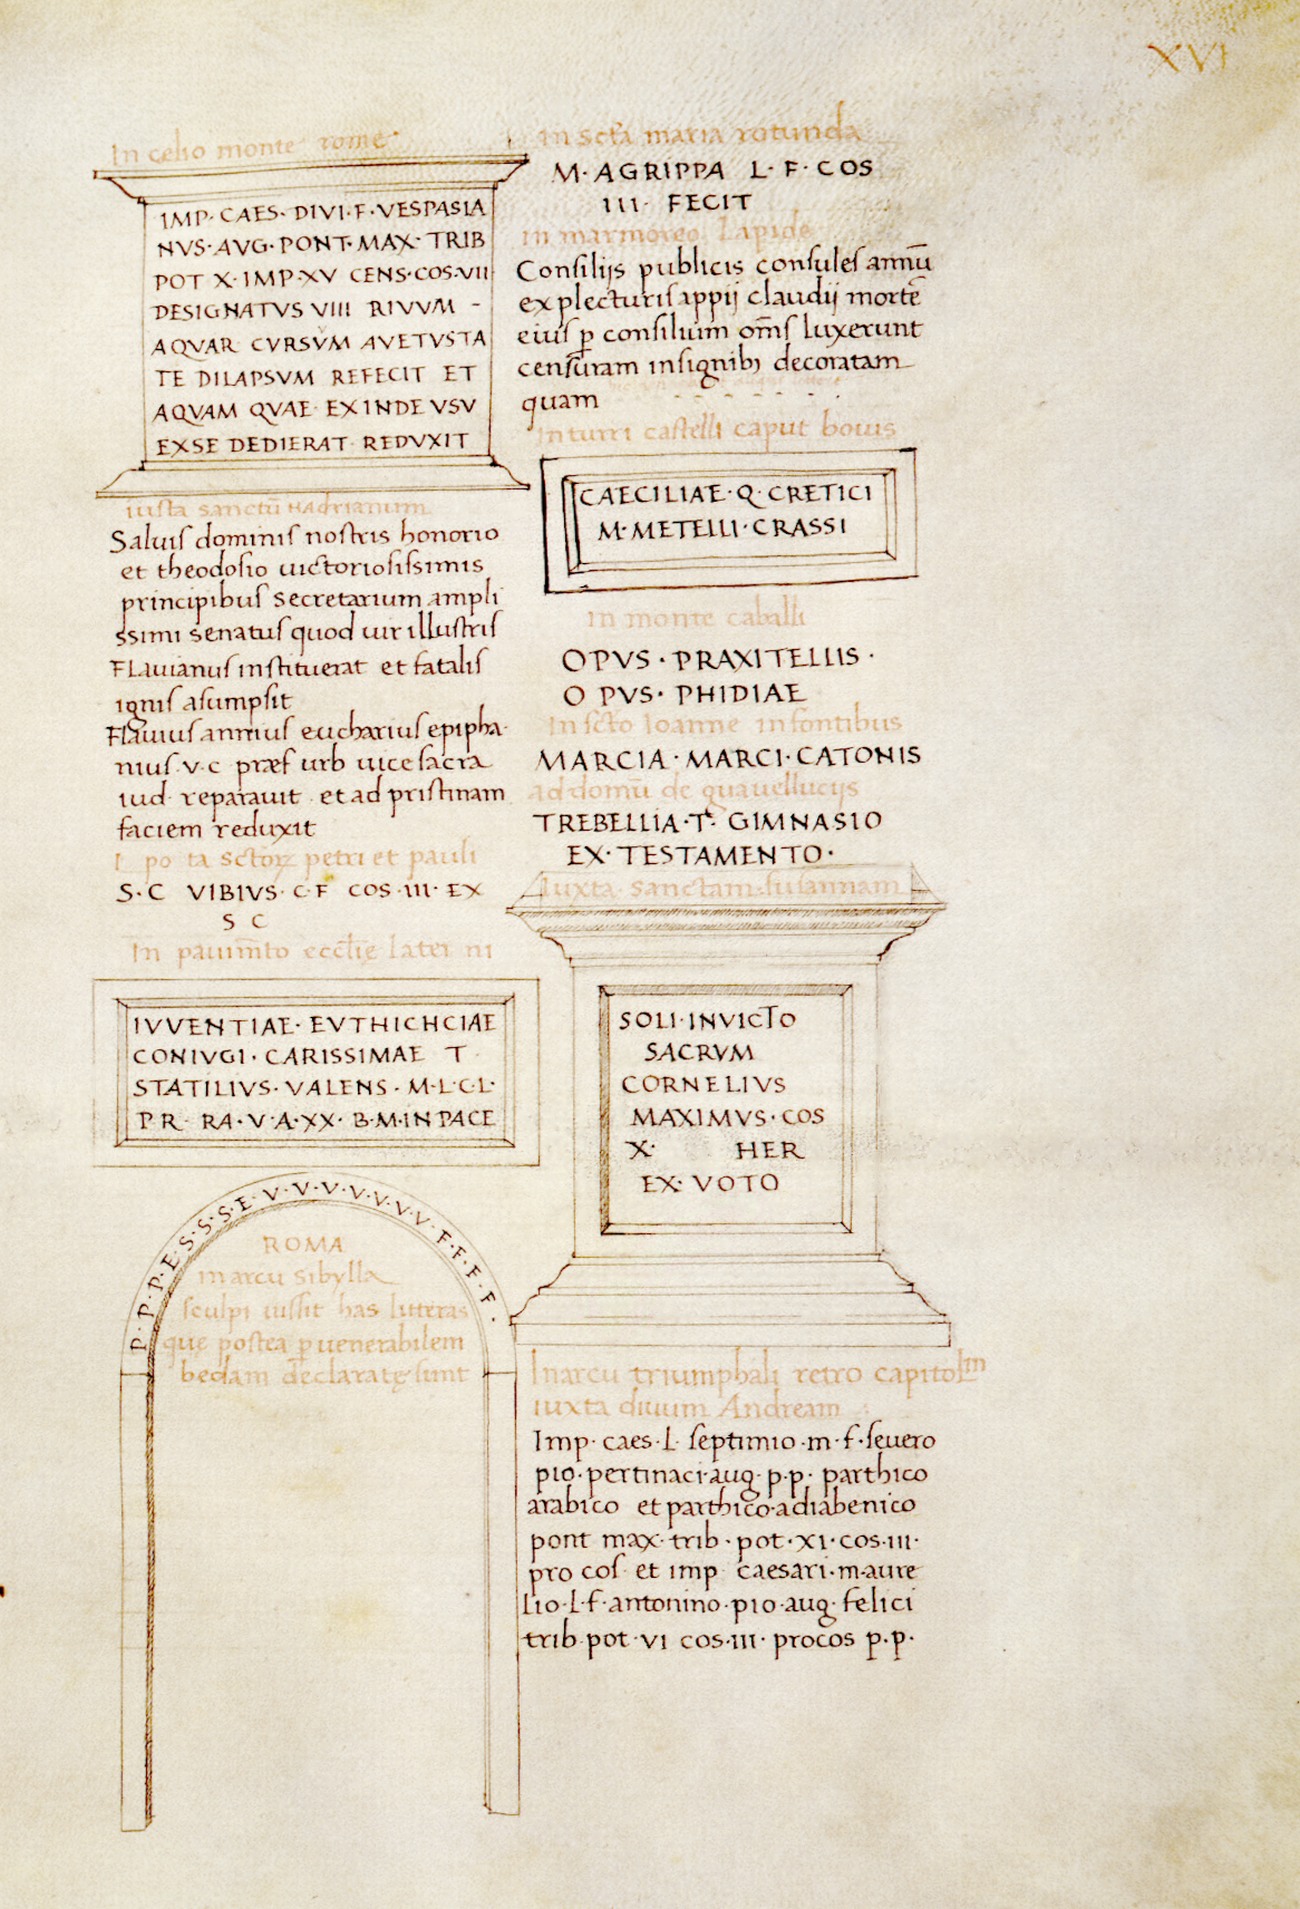 XVI
In celio monte rome
IMP· CAES· DIVI·F·VESPASIA
NVS·AVG·PONT·MAX· TRIB
POT X·IMP·XV CENS·COS·VII
DESIGNATVS VIII RIVVM -
AQVAR CVRSVM AVETVSTA
TE DILAPSVM REFECIT ET
AQVAM QVAE EXINDE VSV
EXSE DEDIERAT REDVXIT
iusta sanctū Hadrianum
Saluis dominis nostris honorio
et theodosio uictoriosissimis
principibus secretarium ampli
ssimi senatus quod uir illustris
Flauianus instituerat et fatalis
ignis asumpsit
Flauius annius eucharius epipha·
nius·v·c præf urb uice sacra
iud· reparauit et ad pristinam
faciem reduxit
po ta sctorꝝ petri et pauli
S·C VIBIVS·C·F COS·III· EX
S C
In pauim̄to eccl̄ię later ni
IVVENTIAE· EVTHICHCIAE
CONIVGI· CARISSIMAE T·
STATILIVS· VALENS· M·L·C·L·
P R· RA·V·A·XX· B·M·IN PACE
P·P·P·E·S·S·S·E·V·V·V·V·V·V·V·F·F·F·F·
ROMA
marcu sibylla
sculpi iussit has litteras
que postea p̱ uenerabilem
bedam declaratę sunt
In scta maria rotunda
M·AGRIPPA L·F·COS
III· FECIT
in marmoreo Lapide
Consilijs publicis consules annū
ex plecturis appij claudij mortē
eius ꝑ consiluim om̄s luxerunt
censuram insignibꝫ decoratam
quam - - - - - -
In turri castelli caput bouis
CAECILIAE·Q·CRETICI
M·METELLI·CRASSI
in monte caballi
OPVS·PRAXITELLIS·
O PVS· PHIDIAE
In scto Ioanne in fontibus
MARCIA·MARCI·CATONIS
ad domū de guauellucijs
TREBELLIA·T· GIMNASIO
EX·TESTAMENTO·
Iuxta Sanctam susannam
SOLI·INVICTO
SACRVM
CORNELIVS
MAXIMVS·COS
X· HER
EX· VOTO
In arcu triumphali retro capitolm
iuxta diuum Andream
Imp· caes·L· septimio·m·f·seuero
pio·pertinaci·aug·p·p· parthico
arabico et parthico·adiabenico
pont max·trib·pot·XI·cos·III·
pro cos et imp caesari·m·aure
Lio·L·f·antonino·pio·aug·felici
trib·pot·VI cos·III· procos p·p·